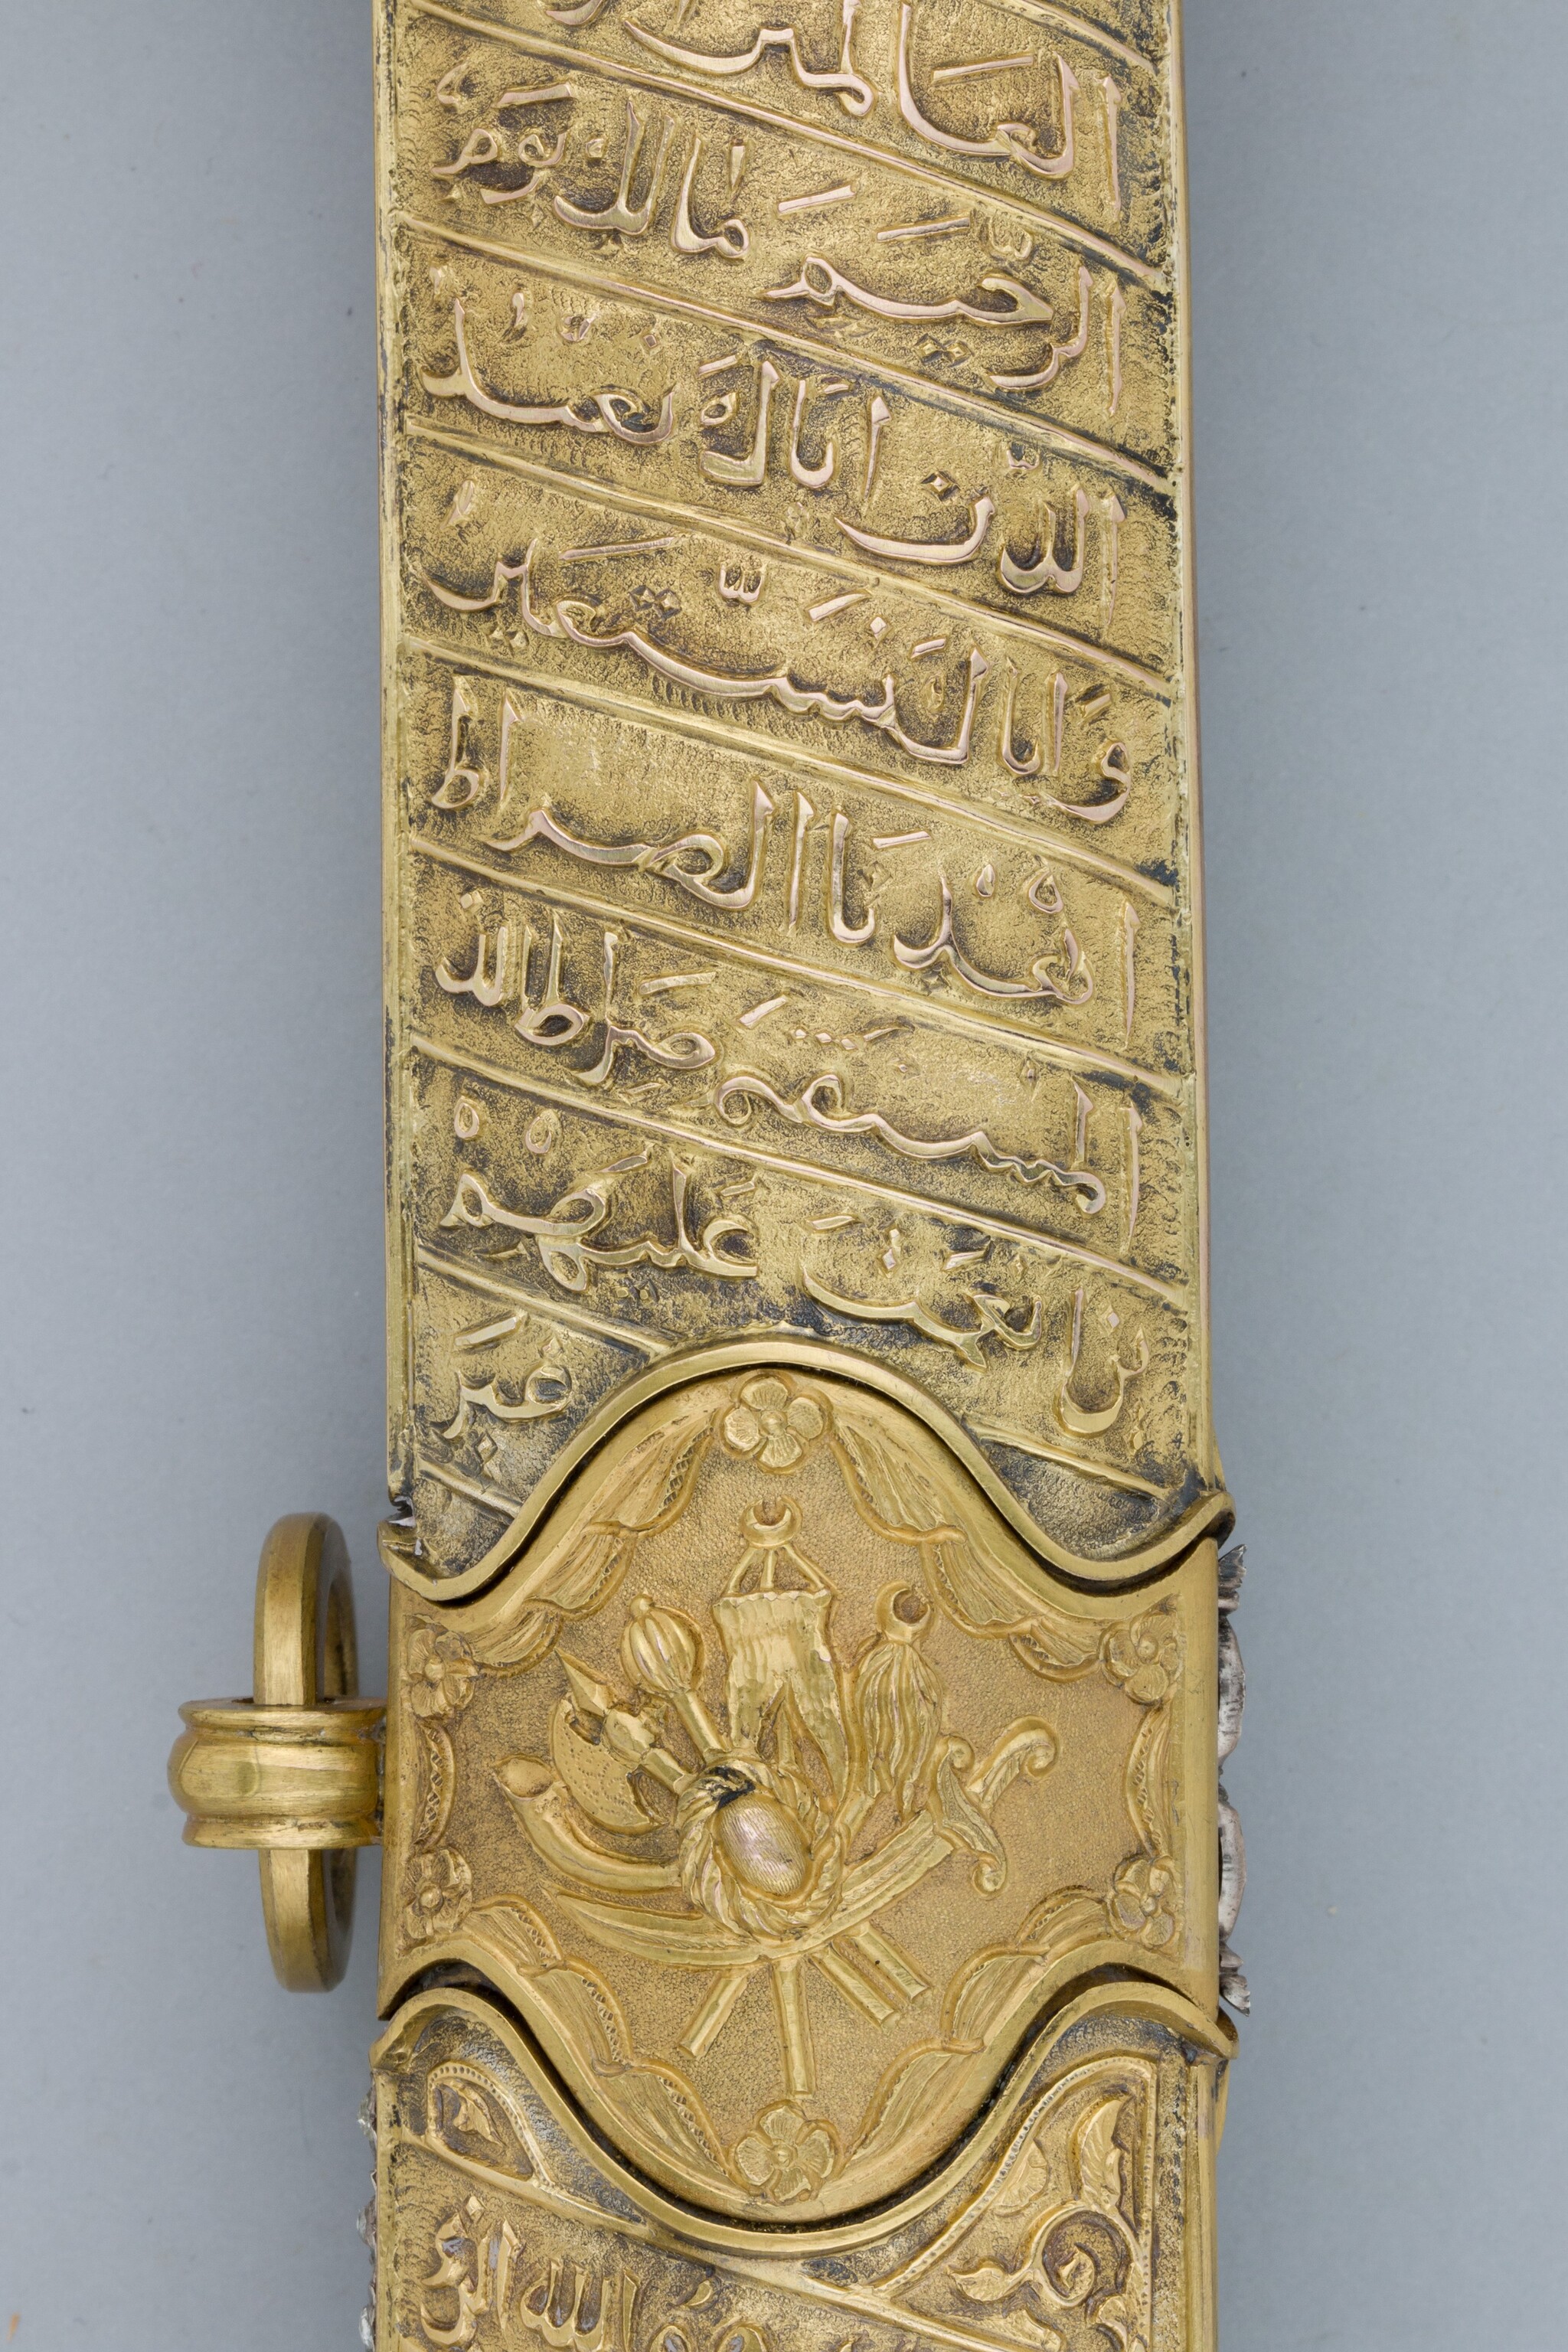 العالمين
الرحيم مالك يوم
الدين اياك نعبد
وايا ك نستعين
اهد نا الصراط
المستقيم صراط الذ
ين انعمت عليهم
غير
الله الر